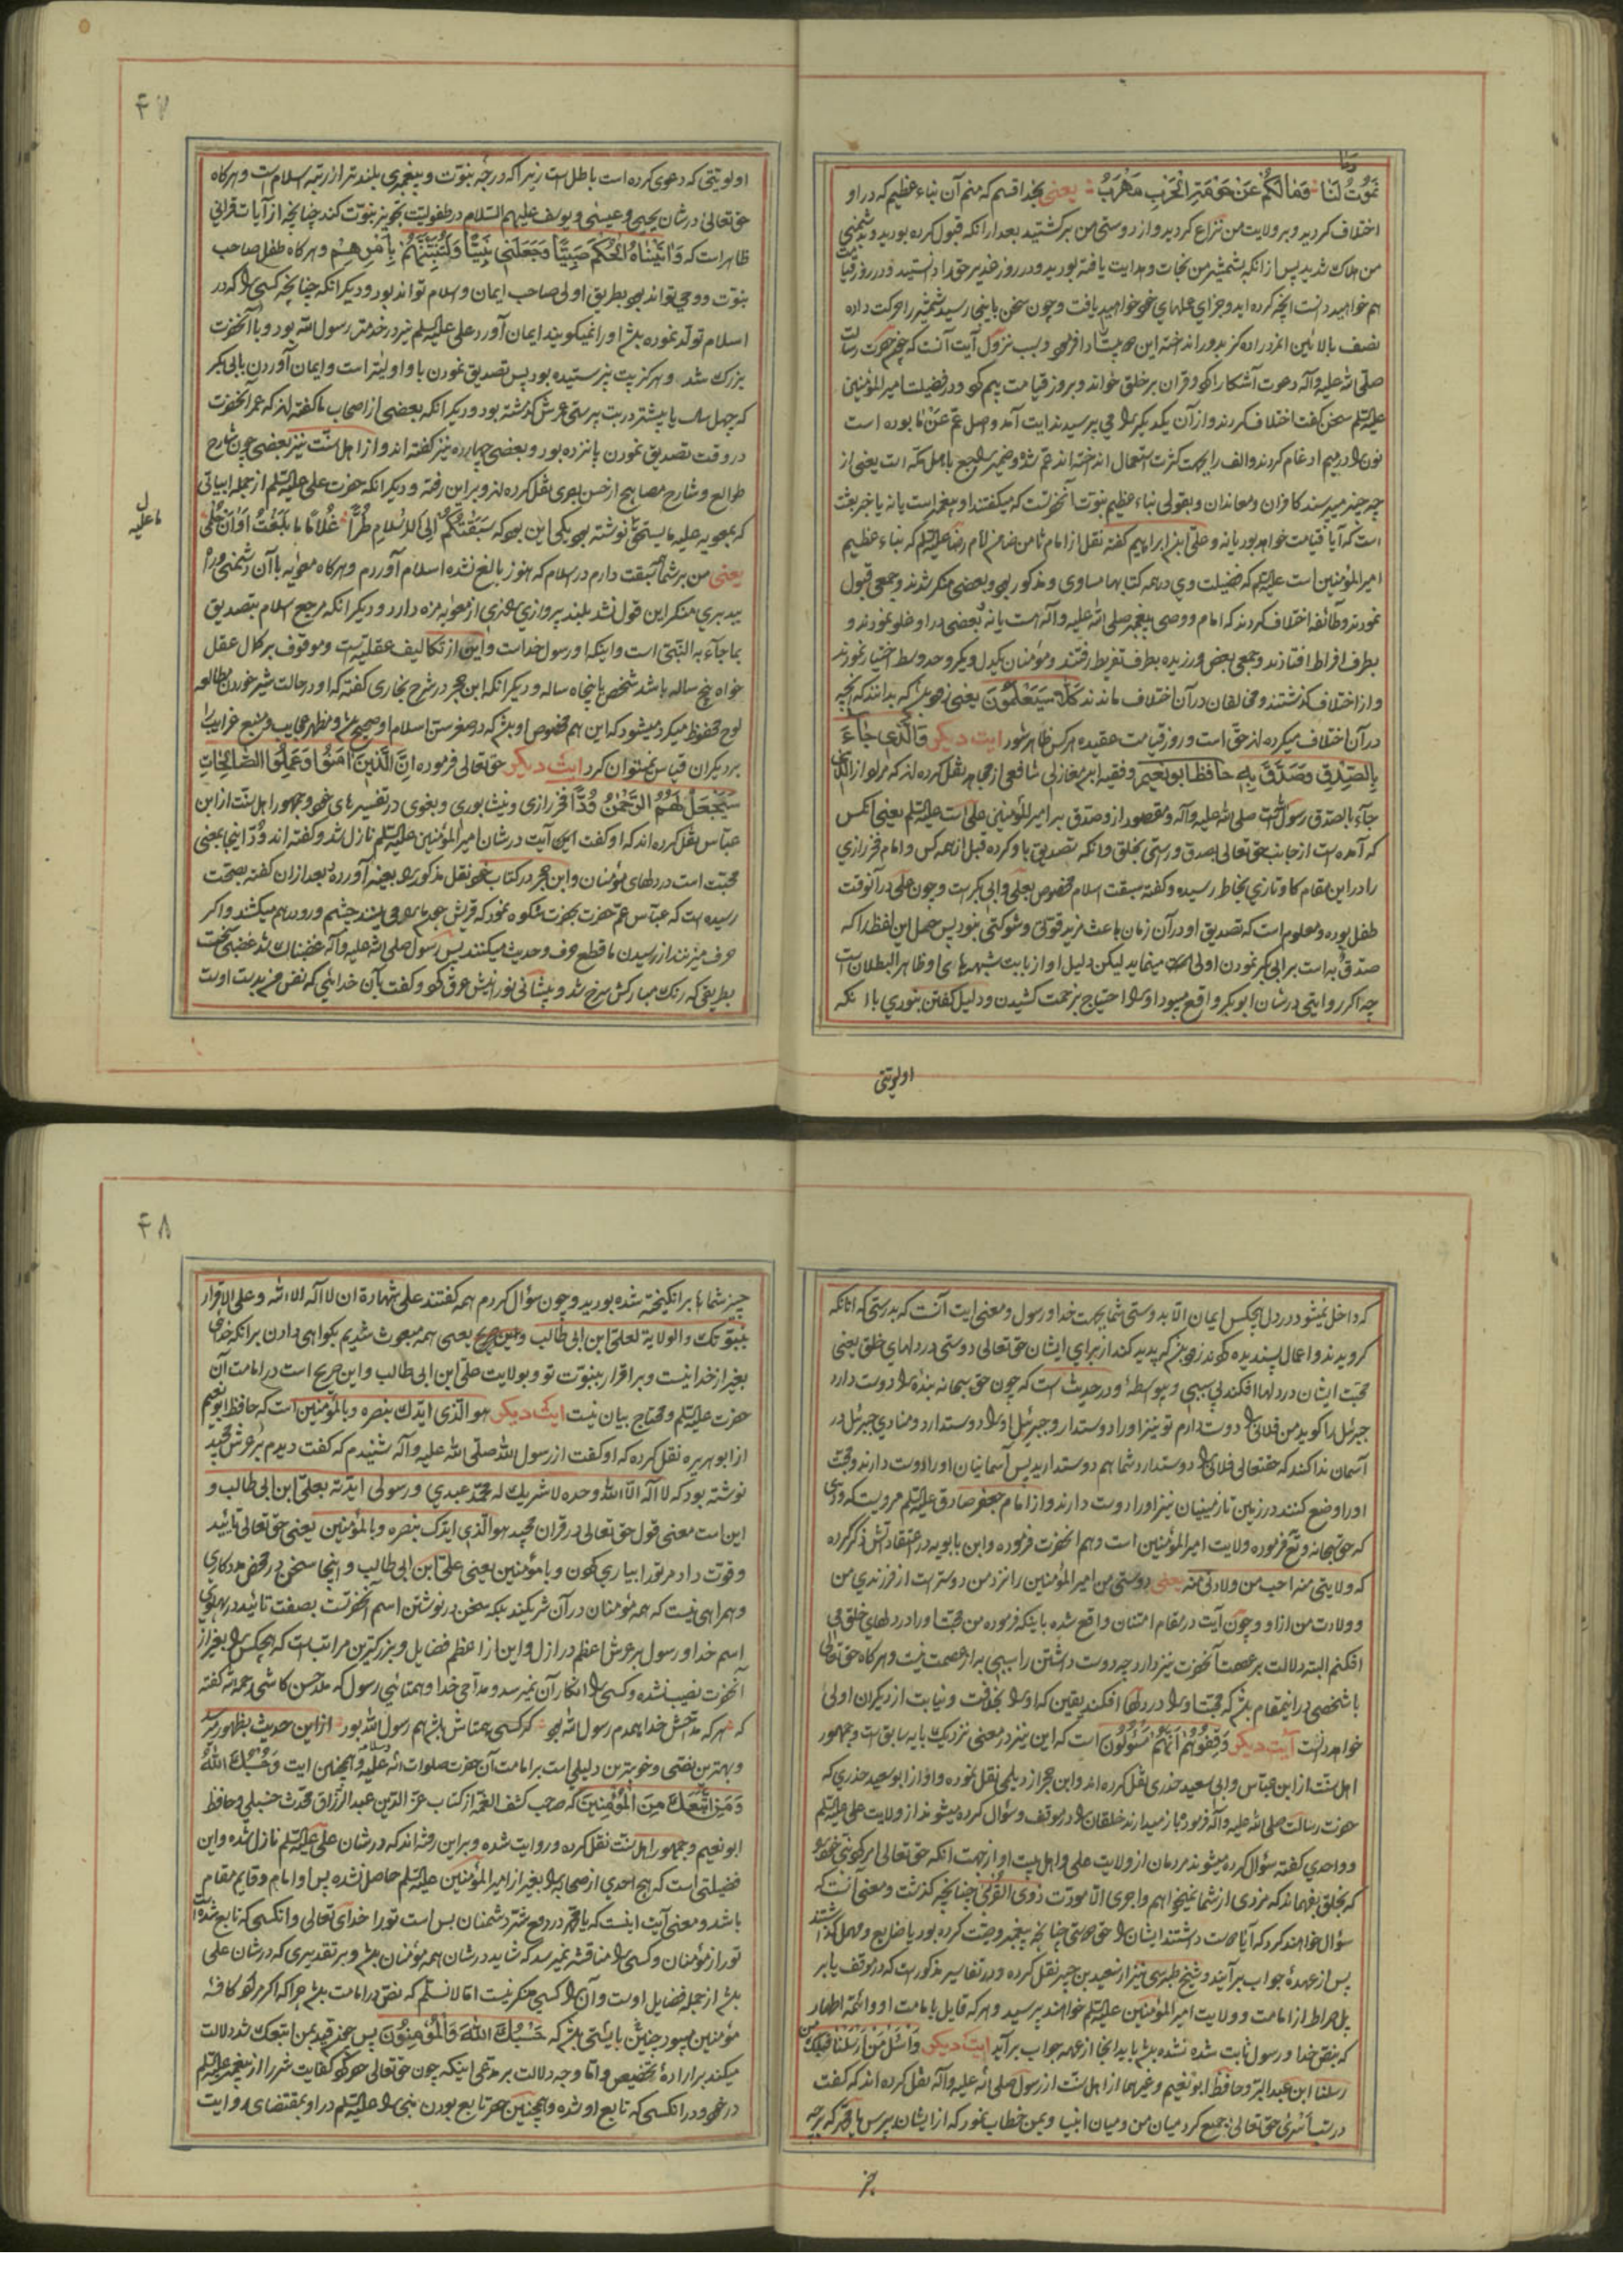 اختلاف کردید و بر ولایت من نزاع کردید و از دوستی من برگشتید بعد از آنکه قبول کرده بودید و بدشمنی
من هلاک شدید پس از آنکه بشمشیر من نجات و هدایت یافته بودید و در روز غدیر حق را دانستید و در روز قیامت
هم خواهید دانست آنچه کرده اید و جزای عملهای خود خواهید یافت و چون سخن باینجا رسید شمشیر را حرکت داده
صلی الله علیه وآله دعوت آشکارا کرد و قران بر خلق خواند و بروز قیامت بیم کرد و در فضیلت امیر المؤمنین
علیه السلم سخن گفت اختلاف کردند و از آن یکدیگر را می پرسیدند آیت آمد و اصل عم عن ما بوده است
نون را در میم ادغام کردند و الف را بجهت کثرت استعمال انداخته اند عم شد و ضمیر راجع باهل مکه است یعنی از
چه چیز میپرسند کافران و معاندان و بقولی نباء عظیم نبوت آنحضرتست که میگفتند او پیغمبر است یا نه یا خبر بعث
است که آیا قیامت خواهد بود یا نه و علی ابن ابراهیم گفته نقل از امام ثامن ضامن امام رضا علیه السلم که نباء عظیم
امیر المؤمنین است علیه السلم که فضیلت وی در همه کتابها مساوی و مذکور بود و بعضی منکر شدند و جمعی قبول
نمودند و طائفه اختلاف کردند که امام و وصی پیغمبر صلی الله علیه وآله است یا نه بعضی در او غلو نمودند و
بطرف افراط افتادند و جمعی بغض ورزیده بطرف تفریط رفتند و مؤمنان یکدل و یکرو حد وسط اختیار نمودند
و از اختلاف گذشتند و مخالفان در آن اختلاف ماندند کلا سیعلمون یعنی زود باشد که بدانند که آنچه
در آن اختلاف میکرده اند حق است و روز قیامت عقیده هر کس ظاهر شود ایت دیکر والذی جاء
بالصدق وصدق به حافظ ابو نعیم و فقیه ابن مغازلی شافعی از مجاهد نقل کرده اند که مراد از الذی
جاء بالصدق رسول الله است صلی الله علیه وآله و مقصود از و صدق به امیر المؤمنین علی است علیه السلم یعنی آنکس
که آمده است از جانب حق تعالی بصدق و راستی بخلق و آنکه تصدیق باو کرده قبل از همه کس و امام فخر رازی
را در این مقام کاو تازی بخاطر رسیده و گفته سبقت اسلام مخصوص بعلی و ابی بکر است و چون علی در آنوقت
طفل بوده و معلوم است که تصدیق او در آن زمان باعث مزید قوتی و شوکتی نبود پس حمل این لفظ را که
صدق به است بر ابی بکر نمودن اولی مینماید لیکن دلیل او از بابت شبهه های او ظاهر البطلان است
چه اکر روایتی در شان ابو بکر واقع میبود او را احتیاج بزحمت کشیدن و دلیل گفتن نبودی با آنکه
اولویتی
۴۷
اولویتی که دعوی کرده است باطل است زیرا که درجه نبوت و پیغمبری بلندتر از رتبه اسلام است و هر گاه
حق تعالی در شان یحیی و عیسی و یوسف علیهم السلام در طفولیت تجویز نبوت کند چنانچه از آیات قرانی
ظاهر است که وآتیناه الحکم صبیا وجعلنی نبیا ولتنبئنهم بامرهم و هر گاه طفل صاحب
نبوت و وحی تواند بود بطریق اولی صاحب ایمان و اسلام تواند بود و دیگر آنکه چنانچه کسی را که در
اسلام تولد نموده باشد او را نمیگویند ایمان آورد علی علیه السلم نیز در خدمت رسول الله بود و با آنحضرت
بزرگ شد و هرگز بت نپرستیده بود پس تصدیق نمودن باو اولیتر است و ایمان آوردن بابی بکر
که چهل سال یا بیشتر در بت پرستی عمرش گذشته بود و دیگر آنکه بعضی از اصحاب ما گفته اند که عمر آنحضرت
در وقت تصدیق نمودن پانزده بود و بعضی چهارده نیز گفته اند و از اهل سنت نیز بعضی چون شارح
طوالع و شارح مصابیح از حسن بصری نقل کرده اند و بر این رفته و دیگر آنکه حضرت علی علیه السلم از جمله ابیاتی
که بمعویه علیه ما یستحق نوشته بود یکی این بود که سبقتکم الی الاسلام طرا غلاما ما بلغت اوان حلمی
یعنی من بر شما سبقت دارم در اسلام که هنوز بالغ نشده اسلام آوردم و هر گاه معویه با آن دشمنی
بما جاء به النبی است و اینکه او رسول خداست و این از تکالیف عقلیه است و موقوف بر کمال عقل
خواه پنج ساله باشد شخص یا پنجاه ساله و دیگر آنکه ابن حجر در شرح بخاری گفته که او در حالت شیر خوردن مطالعه
لوح محفوظ میکرد
بر دیگران قیاس نمیتوان کرد ایت دیکر حق تعالی فرموده ان الذین آمنوا وعملوا الصالحات
سیجعل لهم الرحمن ودا فخر رازی و نیشابوری و بغوی در تفسیرهای خود و جمهور اهل سنت از ابن
عباس نقل کرده اند که او گفت این آیت در شان امیر المؤمنین علیه السلم نازل شد و گفته اند ود اینجا بمعنی
محبت است در دلهای مؤمنان و ابن حجر در کتاب خود نقل مذکور را بعینه آورده بعد از آن گفته بصحت
حرف میزنند از رسیدن ما قطع حرف و حدیث میکنند پس رسول صلی الله علیه وآله غضبناک شد غضبی سخت
بطریقی که رنگ مبارکش سرخ شد و پیشانی نورانیش عرق کرد و گفت بآن خدائی که نفس من بدست اوست
که داخل نمیشود در دل هیچکس ایمان الا بدوستی شما بجهت خدا و رسول و معنی ایت آنست که بدرستی که آنانکه
گرویدند و اعمال پسندیده کردند زود باشد که پدید کند از برای ایشان حق تعالی دوستی در دلهای خلق یعنی
محبت ایشان در دلها افکند بی سببی و بیواسطه و در حدیث است که چون حق سبحانه بنده را دوست دارد
جبرئیل را گوید من فلانی را دوست دارم تو نیز او را دوست دار و جبرئیل او را دوست دارد و منادی جبرئیل در
آسمان ندا کند که حقتعالی فلانی را دوست دارد شما هم دوست دارید پس آسمانیان او را دوست دارند و محبت
او را وضع کنند در زمین تا زمینیان نیز او را دوست دارند و از امام جعفر صادق علیه السلم مرویست که
که حق سبحانه و تع فرموده ولایت امیر المؤمنین است و هم آنحضرت فرموده و ابن بابویه در اعتقاداتش ذکر کرده
که ولایتی منه احب من ولادتی منه یعنی دوستی من امیر المؤمنین را نزد من دوستر است از فرزندی من
و ولادت من از او و چون آیت در مقام امتنان واقع شده باینکه فرموده من محبت او را در دلهای خلق می
افکنم البته دلالت بر عصمت آنحضرت نیز دارد چه دوست داشتن را سببی به از عصمت نیست و هر گاه حق تعالی
با شخصی در اینمقام باشد که محبت او را در دلها افکند یقین که او را بخلافت و نیابت از دیگران اولی
خواهد دانست آیت دیکر وقفوهم انهم مسؤلون است که این نیز در معنی نزدیک بآیه سابق است و جمهور
اهل سنت از ابن عباس و ابی سعید خدری نقل کرده اند و ابن حجر از دیلمی نقل نموده و او از ابو سعید خدری که
حضرت رسالت صلی الله علیه وآله فرمود باز میدارند خلقان را در موقف و سؤال کرده میشوند از ولایت علی علیه السلم
و واحدی گفته سؤال کرده میشوند مردمان از ولایت علی و اهل بیت او از جهت آنکه حق تعالی امر کرد نبی خود را
که بخلق بفهماند که مزدی از شما نمیخواهم و اجری الا مودت ذوی القربی چنانچه گذشت و معنی آنست که
پس از عهدۀ جواب برآیند و شیخ طبرسی نیز از سعید بن جبیر نقل کرده و در تفاسیر مذکور است که در موقف یا بر
پل صراط از امامت و ولایت امیر المؤمنین علیه السلم خواهند پرسید و هر که قایل بامامت او
که بنص خدا و رسول ثابت شده نشده باشد باید آنجا از عهده جواب برآید ایت دیکر واسئل من ارسلنا قبلک من
رسلنا ابن عبد البر و حافظ ابو نعیم و غیرهما از اهل سنت از رسول صلی الله علیه وآله نقل کرده اند که گفت
در شب اسری حق تعالی جمع کرد میان من و میان انبیا و بمن خطاب نمود که از ایشان بپرس یا محمد که بر چه
۴۸
چیز شماها برانگیخته شده بودید و چون سؤال کردم همه گفتند علی شهادة ان لا اله الا الله وعلی الاقرار
بنبوتک والولایة لعلی ابن ابی طالب یعنی همه مبعوث شدیم بگواهی دادن بر آنکه خدای
بغیر از خدا نیست و بر اقرار بنبوت تو و بولایت علی ابن ابی طالب و این صریح است در امامت آن
حضرت علیه السلم و محتاج بیان نیست ایت دیکر هو الذی ایدک بنصره وبالمؤمنین است که حافظ ابو نعیم
از ابو هریره نقل کرده که او گفت از رسول الله صلی الله علیه وآله شنیدم که گفت دیدم بر عرش مجید
نوشته بود که لا اله الا الله وحده لا شریک له محمد عبدی ورسولی ایدته بعلی ابن ابی طالب و
این است معنی قول حق تعالی در قران مجید هو الذی ایدک بنصره وبالمؤمنین یعنی حق تعالی تایید
و قوت داد مر تو را بیاری کردن و با مؤمنین یعنی علی ابن ابی طالب و اینجا سخن در محض مددکاری
و همراهی نیست که همه مؤمنان در آن شریکند بلکه سخن در نوشتن اسم آنحضرتست بصفت تائید در پهلوی
اسم خدا و رسول بر عرش اعظم در ازل و این از اعظم فضایل و بزرگترین مراتب است که هیچکس را بغیر از
آنحضرت نصیب نشده و کسی را انکار آن نمیرسد و مداحی خدا و همتائی رسول که ملا حسن کاشی رحمه الله گفته
که هر که مداحش خدا همدم رسول الله بود گر کسی همتاش باشد هم رسول الله بود از این حدیث بظهور میرسد
و بهترین نصی و خوبترین دلیلی است بر امامت آن حضرت صلوات الله علیه و همچنین ایت وحسبک الله
ومن اتبعک من المؤمنین که صاحب کشف الغمه از کتاب عز الدین عبد الرزاق محدث حنبلی و حافظ
ابو نعیم و جمهور اهل سنت نقل کرده و روایت شده و بر این رفته اند که در شان علی علیه السلم نازل شده و این
فضیلتی است که هیچ احدی از صحابه را بغیر از امیر المؤمنین علیه السلم حاصل نشده پس او امام و قایم مقام
باشد و معنی آیت اینست که یا محمد در دفع شر دشمنان بس است تو را خدای تعالی و آنکسی که تابع شده است
تو را از مؤمنان و کسی را مناقشه نمیرسد که شاید در شان همه مؤمنان باشد و بر تقدیری که در شان علی
باشد از جمله فضایل اوست و آن را کسی منکر نیست اما لا نسلم که نص در امامت باشد چرا که اگر مراد کافه
مؤمنین میبود چنین بایستی باشد که حسبک الله والمؤمنون پس عجز قید بمن اتبعک شد دلالت
میکند بر ارادۀ تخصیص و اما وجه دلالت بر مدعی اینکه چون حق تعالی